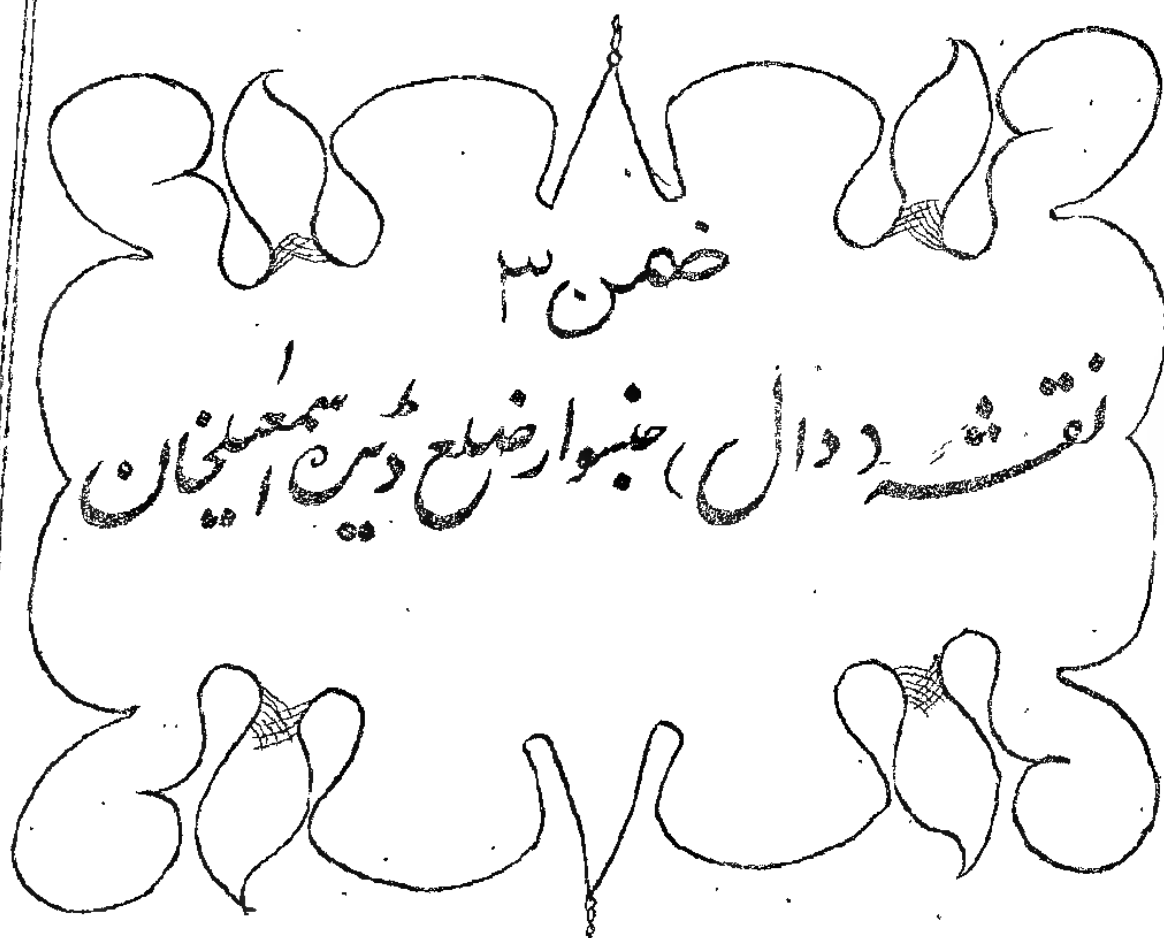 ضمن ۳
نقشہ د دال، جنسوار ضلع ڈیرہ اسمٰعیلخان